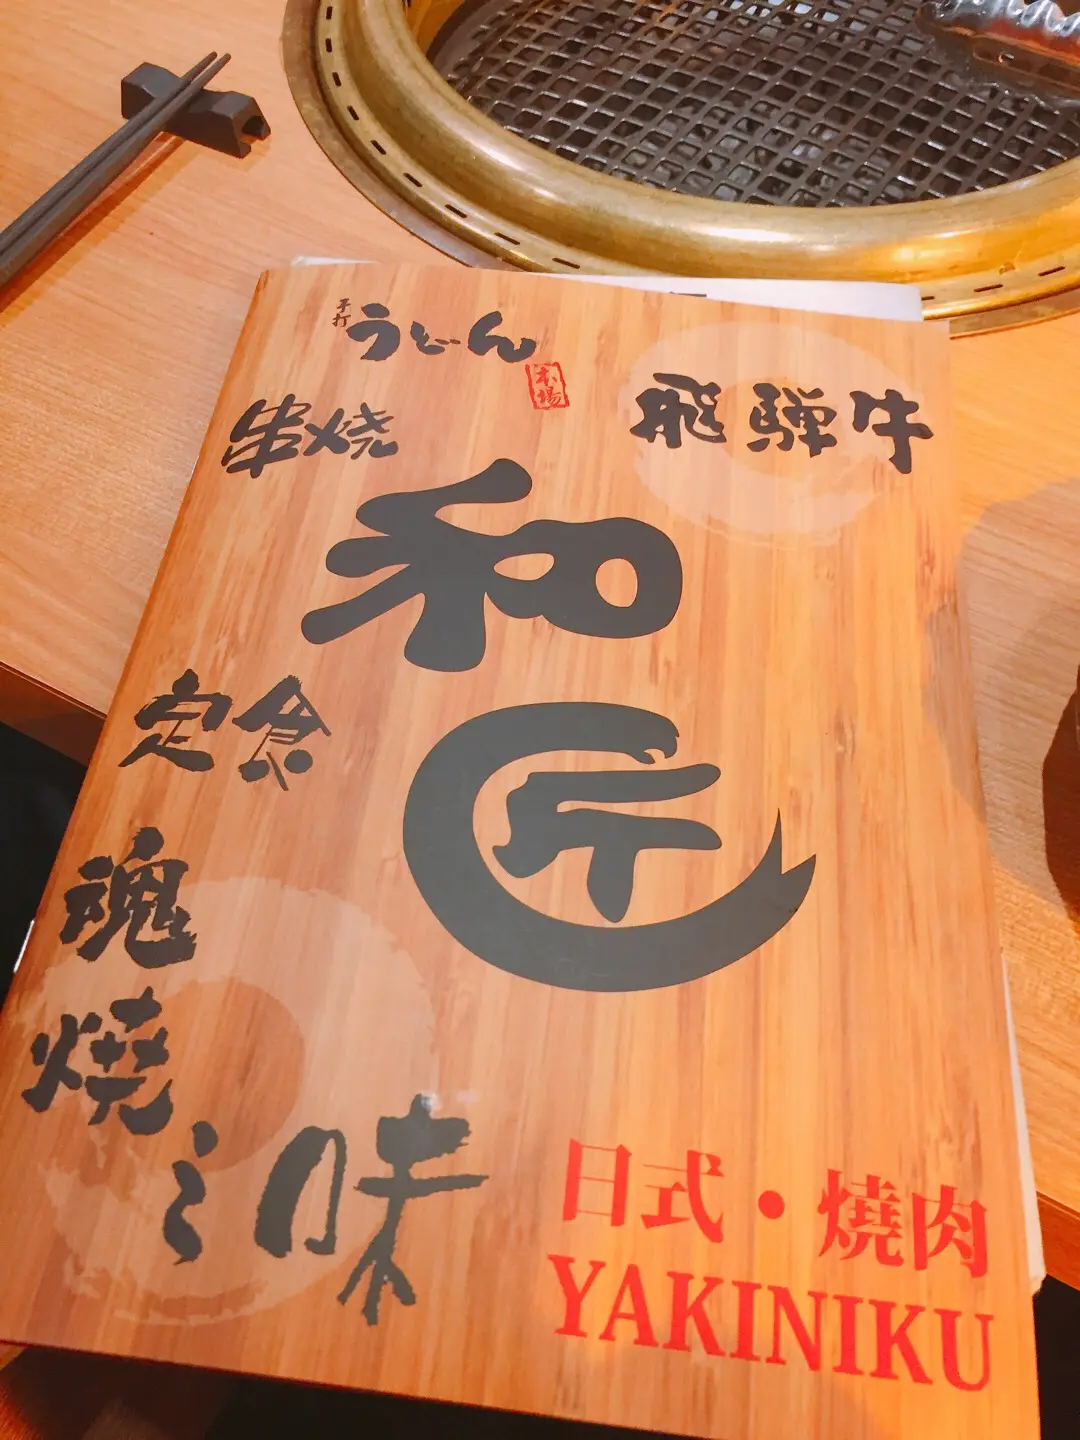 手打
うどん
本場
串焼
飛騨牛
和匠
定食
魂燒之味
日式・燒肉
YAKINIKU